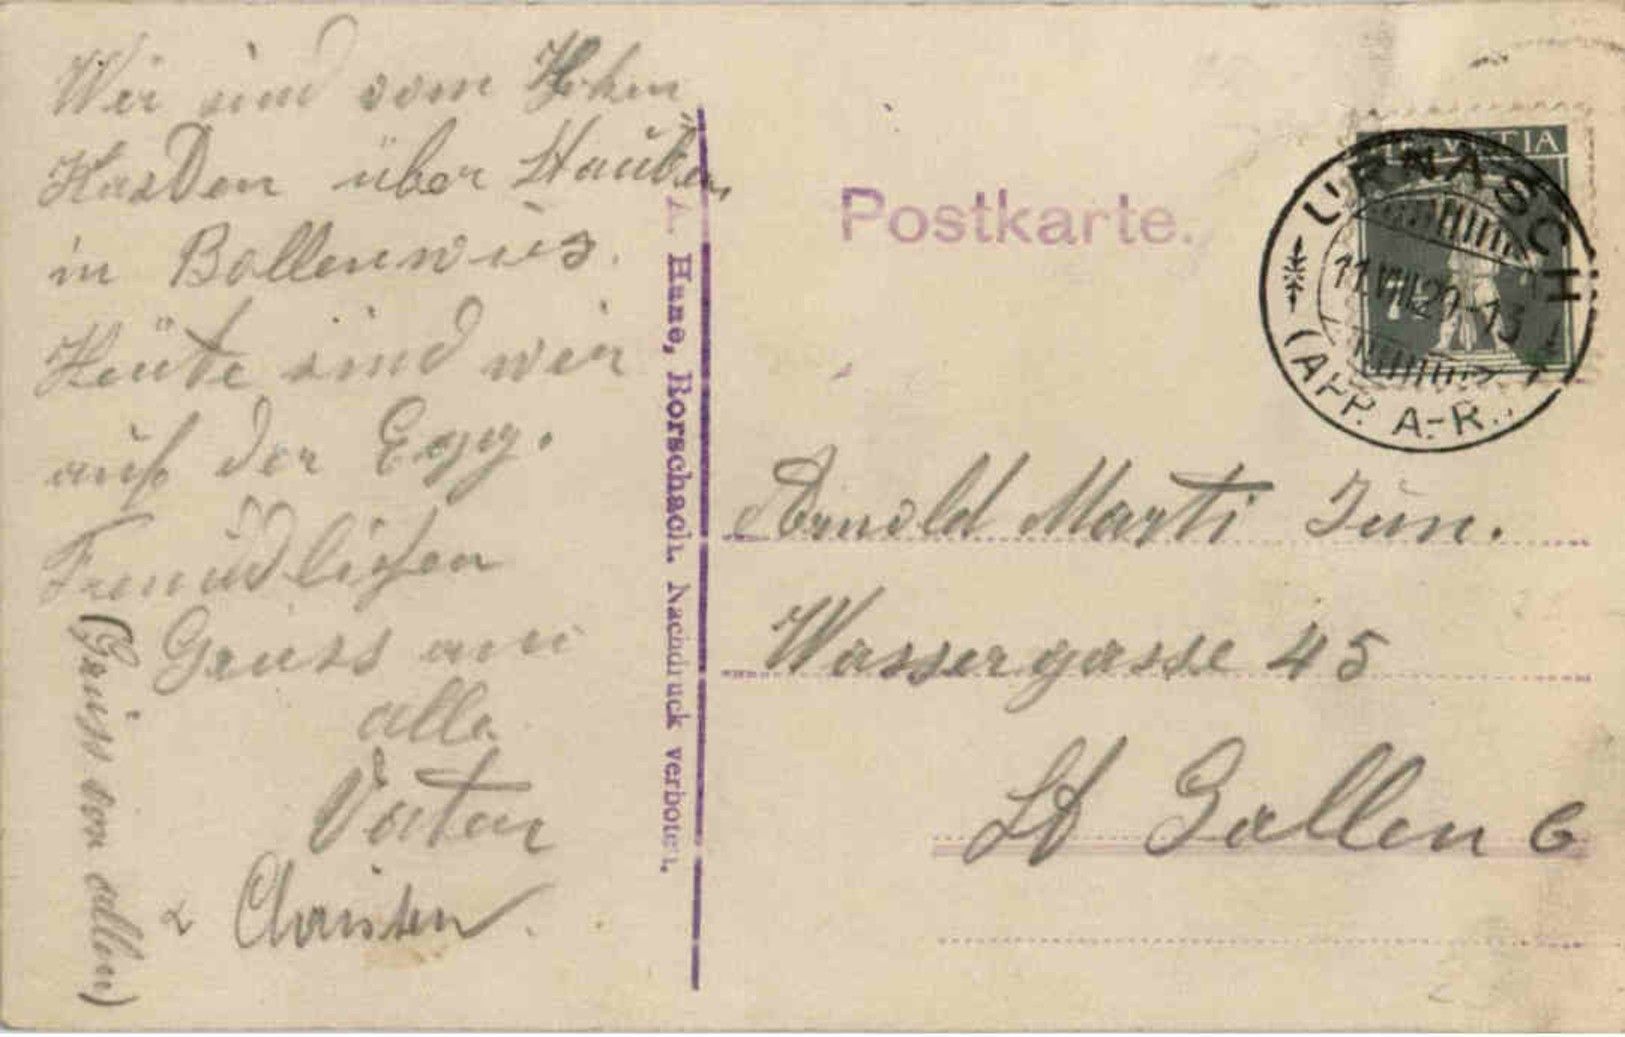 Wir sind vom Hohen
Kasten über Stauben,
in Bollenwies.
Heute sind wir
auf der Egg.
Freundlichen
Gruss an
alle
Vater
& Christen.
(Gruss von allen)
A. Hane, Rorschach. Nachdruck verboten.
Postkarte.
HELVETIA
URNÄSCH
11.VIII.29-13
(APP. A.-R.)
Arnold Marti Jun.
Wassergasse 45
St Gallen C